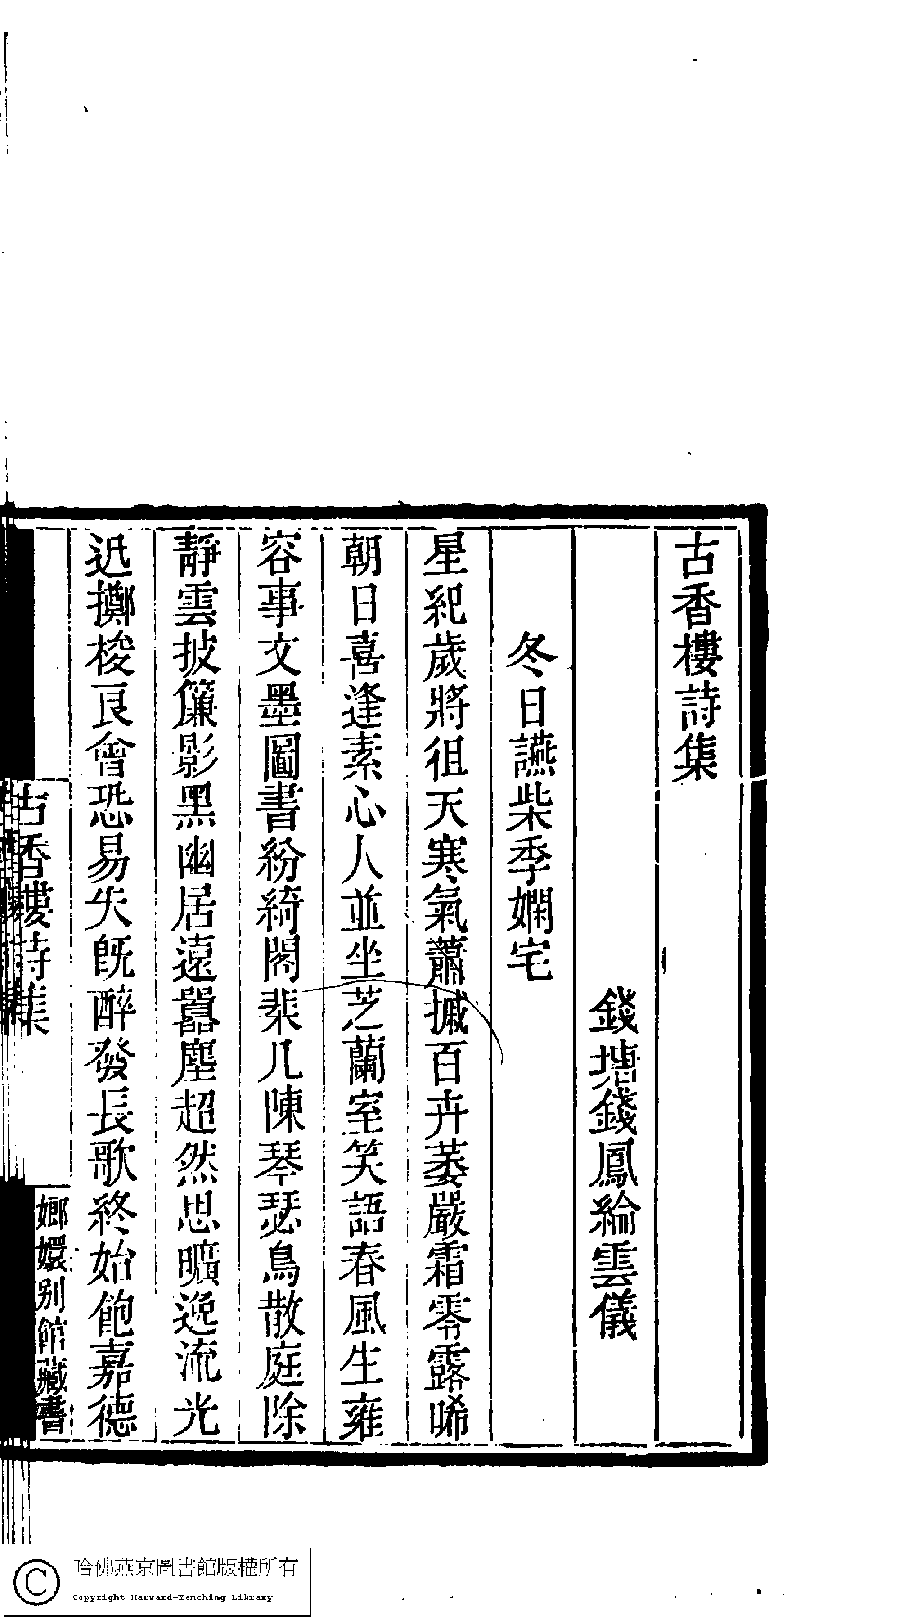 古香樓詩集
錢塘錢鳳綸雲儀
冬日讌柴季嫻宅
星紀歲將徂天寒氣蕭摵百卉萎嚴霜零露晞
朝日喜逢素心人並坐芝蘭室笑語春風生雍
容事文墨圖書紛綺閣棐几陳琴瑟鳥散庭除
靜雲披簾影黑幽居遠囂塵超然思曠逸流光
迅擲梭良會恐易失既醉發長歌終始飽嘉德
古香樓詩集
嫏嬛別館藏書
哈佛燕京圖書館版權所有
Copyright Harvard-Yenching Library